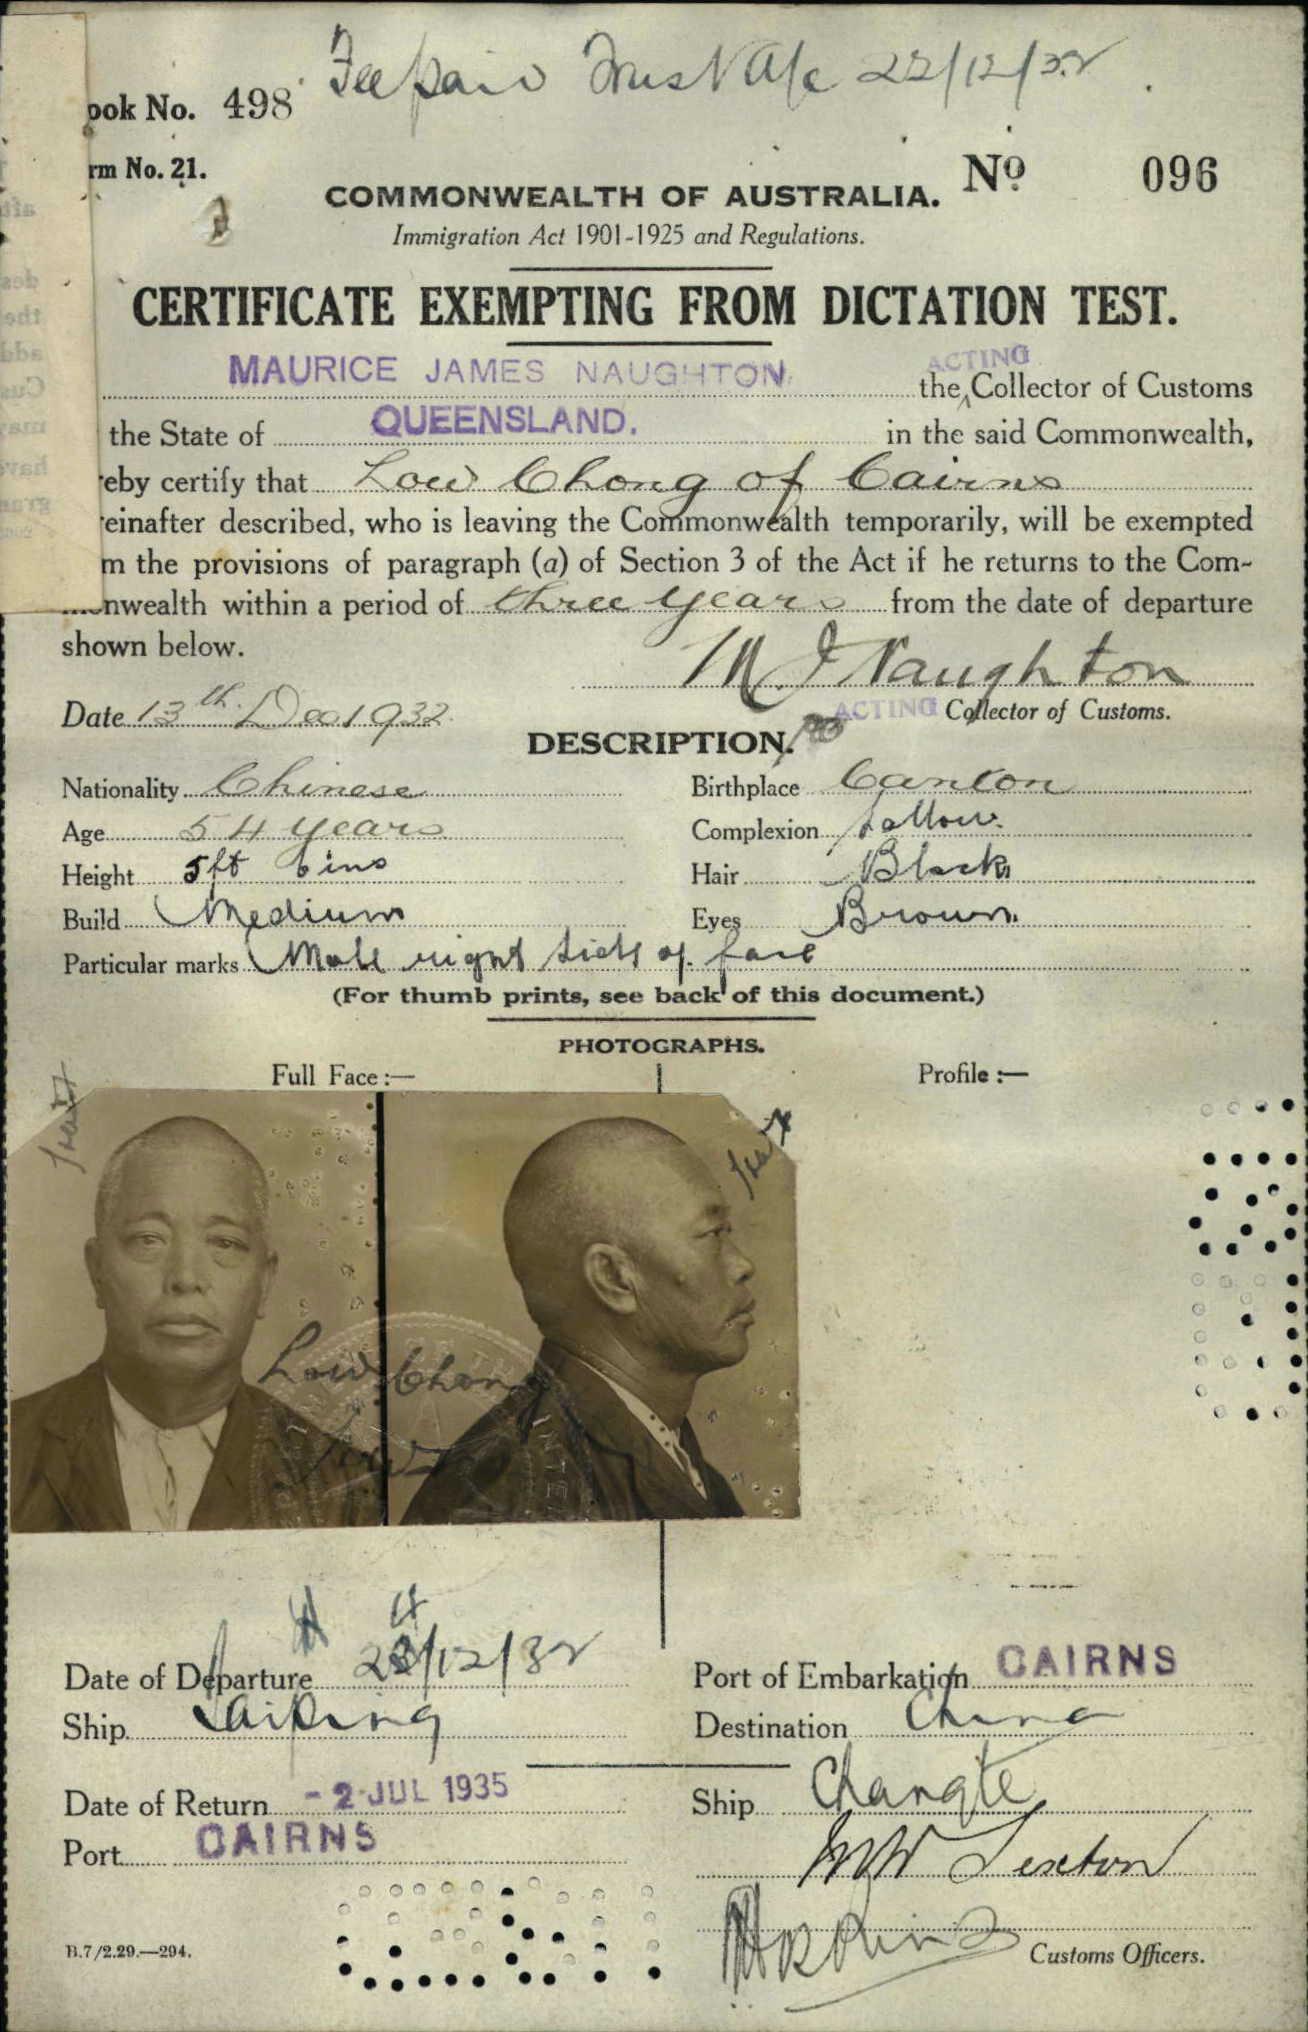 Fee paid Trust A/c 22/12/32
ook No. 498
rm No. 21.
No 096
COMMONWEALTH OF AUSTRALIA.
Immigration Act 1901-1925 and Regulations.
CERTIFICATE EXEMPTING FROM DICTATION TEST.
ACTING
MAURICE JAMES NAUGHTON. the Collector of Customs
the State of QUEENSLAND. in the said Commonwealth,
reby certify that Low Chong of Cairns
reinafter described, who is leaving the Commonwealth temporarily, will be exempted
m the provisions of paragraph (a) of Section 3 of the Act if he returns to the Com-
nwealth within a period of three years from the date of departure
shown below.
M J Naughton
Date 13th. Dec 1932. ACTING Collector of Customs.
DESCRIPTION.
Nationality Chinese Birthplace Canton
Age 54 years Complexion Sallow.
Height 5ft 6ins Hair Black
Build Medium Eyes Brown.
Particular marks Mole right side of face
(For thumb prints, see back of this document.)
PHOTOGRAPHS.
Full Face :— Profile :—
Low Chong
Date of Departure 24/12/32 Port of Embarkation CAIRNS
Ship Taiping Destination China
Date of Return - 2 JUL 1935 Ship Changte
Port CAIRNS
Sexton
B.7/2.29.—294.
Customs Officers.